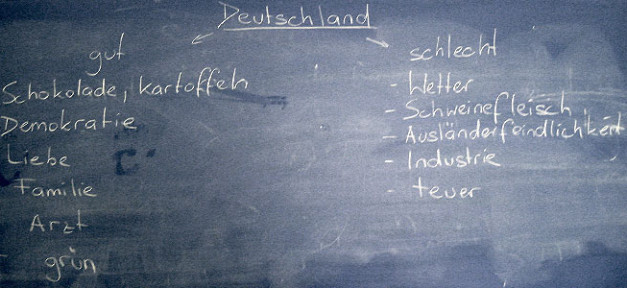 Deutschland
gut
Schokolade, kartoffeln
Demokratie
Liebe
Familie
Arzt
grün
schlecht
- Wetter
- Schweinefleisch
- Ausländerfeindlichkeit
- Industrie
- teuer